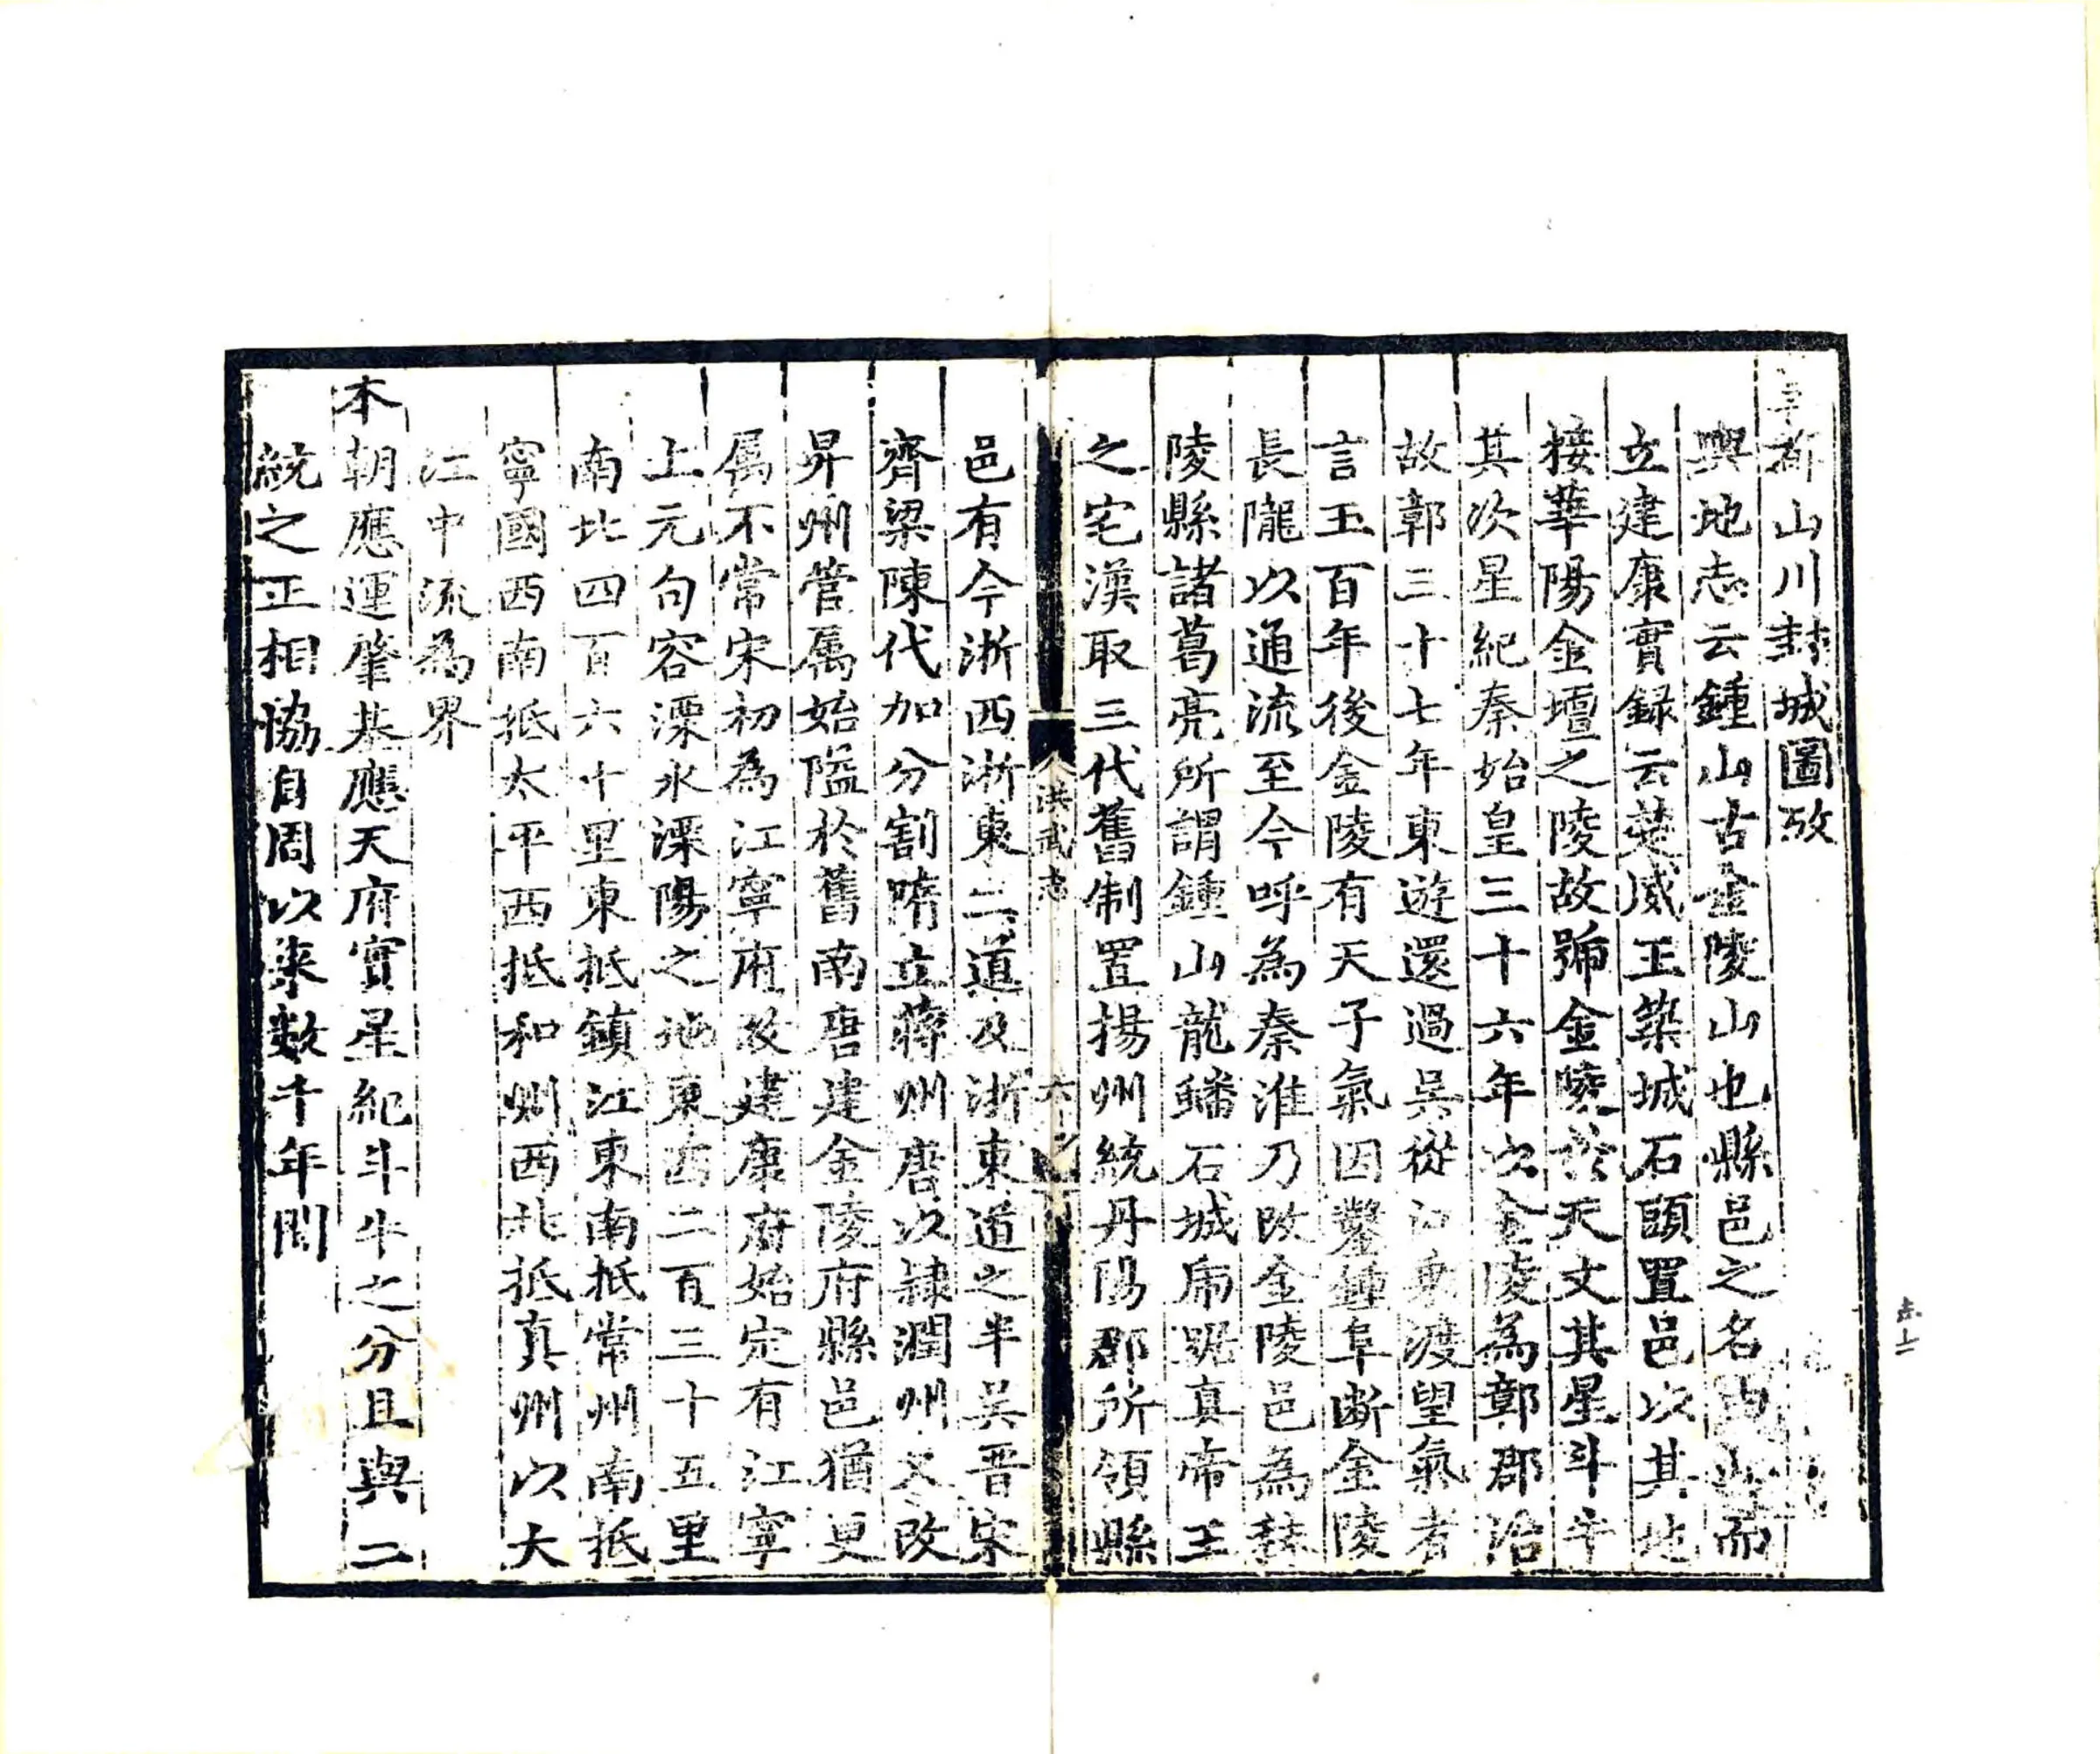 京都山川封城圖攷
輿地志云鍾山古金陵山也縣邑之名由山而
立建康實録云楚威王築城石頭置邑以其地
接華陽金壇之陵故號金陵於天文其星斗牛
其次星紀秦始皇三十六年以金陵為鄣郡治
故鄣三十七年東遊還過吳從江乘渡望氣者
言五百年後金陵有天子氣因鑿鍾阜断金陵
長隴以通流至今呼為秦淮乃改金陵邑為秣
陵縣諸葛亮所謂鍾山龍蟠石城虎踞真帝王
之宅漢取三代舊制置揚州統丹陽郡所領縣
洪武志
六
邑有今浙西浙東二道及浙東道之半吳晋宋
齊梁陳代加分割隋立蒋州唐以隷潤州又改
昇州管属始隘於舊南唐建金陵府縣邑猶更
属不常宋初為江寧府及建康府始定有江寧
上元句容溧水溧陽之地東西二百三十五里
南北四百六十里東抵鎮江東南抵常州南抵
寧國西南抵太平西抵和州西北抵真州以大
江中流為界
本朝應運肇基應天府實星紀斗牛之分且與二
統之正相恊自周以来数千年間